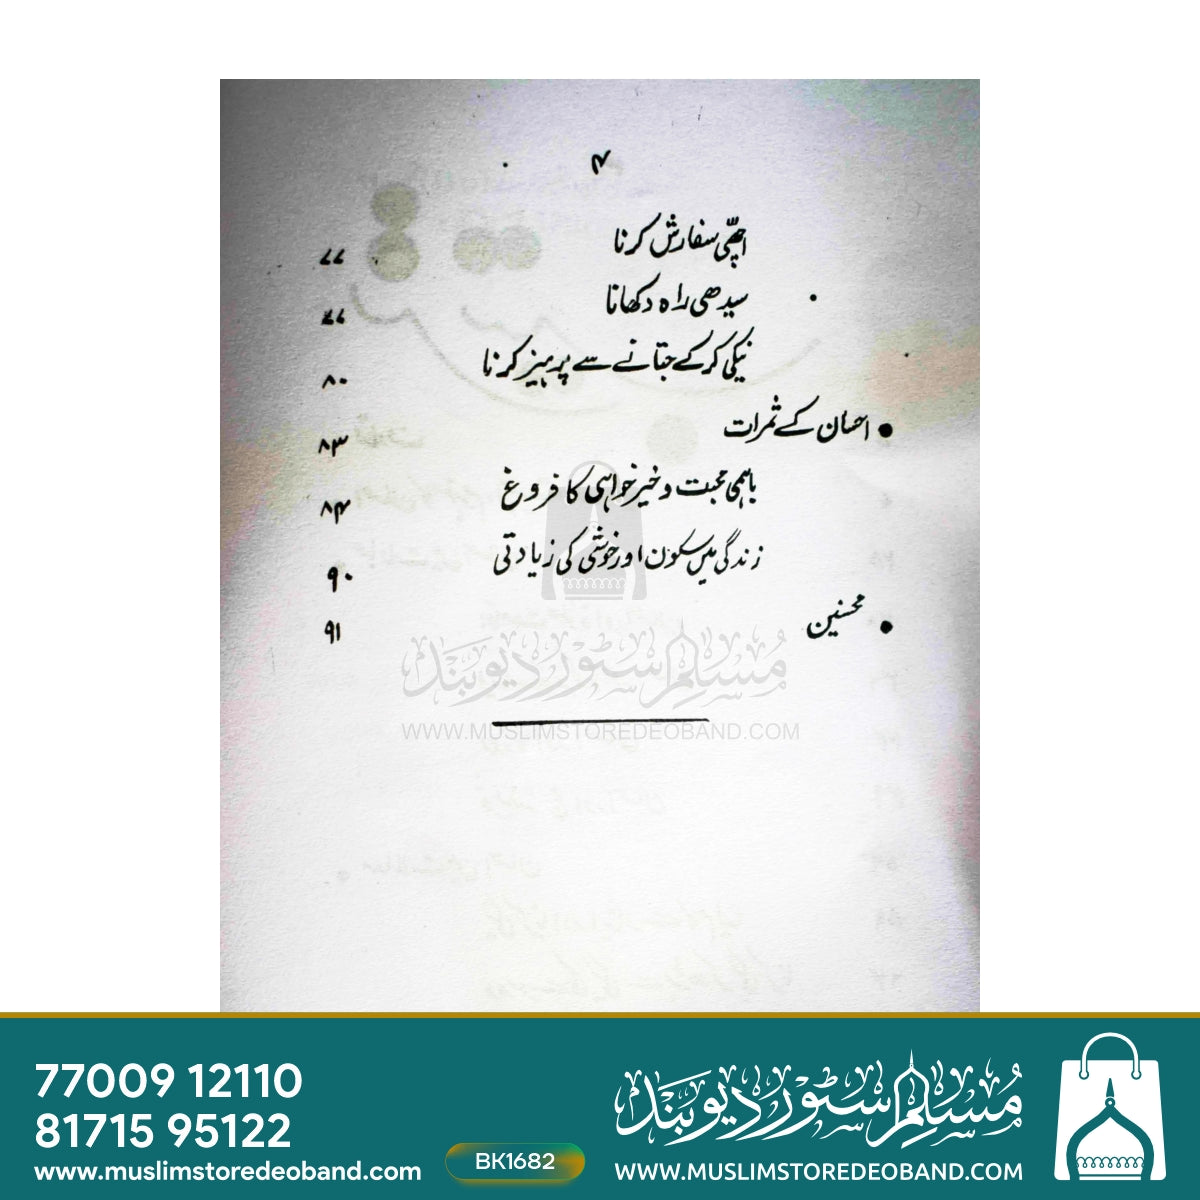 ۴
اچھی سفارش کرنا ۷۷
سیدھی راہ دکھانا ۷۷
نیکی کرکے جتانے سے پرہیز کرنا ۸۰
● احسان کے ثمرات ۸۳
باہمی محبت و خیر خواہی کا فروغ ۸۴
زندگی میں سکون اور خوشی کی زیادتی ۹۰
● محسنین ۹۱
مسلم سٹور دیوبند
WWW.MUSLIMSTOREDEOBAND.COM
77009 12110
81715 95122
www.muslimstoredeoband.com
BK1682
مسلم سٹور دیوبند
WWW.MUSLIMSTOREDEOBAND.COM